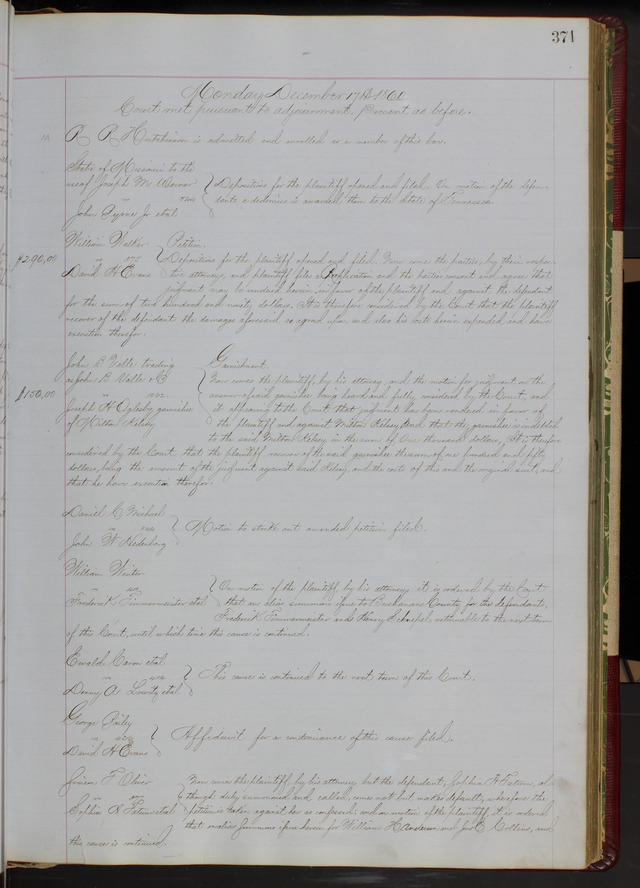 371
Monday December 17th 1861
Court met pursuant to adjournment, present as before.
R R Hutchinson is admitted and enrolled as a member of this bar.
State of Missouri to the
use of Joseph M
vs
John Jr et al
Depositions for the plaintiff opened and filed. On motion of the defen-
dants a dedimus is awarded them to the State of Tennessee
$290,00
William Walker
vs
David H Evans
Petition.
Depositions for the plaintiff opened and filed. Now come the parties, by their
attorneys, and plaintiff files a Replication and the parties consent and agree that
judgment may be rendered herein in favor of the plaintiff and against the defendant
for the sum of two hundred and ninety dollars. It is therefore considered by the Court that the plaintiff
recover of the defendant the damages aforesaid as agreed upon and also his costs herein expended and have
execution therefor.
$150,00
John B Valle trading
as John B Valle & Co
vs
Joseph H Oglesby garnishee
of Milton Kelsey
Garnishment.
Now comes the plaintiff, by his attorney and the motion for judgment on the
answer of said garnishee being heard and fully considered by the Court, and
it appearing to the Court that judgment has been rendered in favor of
the plaintiff and against Milton Kelsey, and that the garnishee is indebted
to the said Milton Kelsey in the sum of One thousand dollars, It is therefore
considered by the Court that the plaintiff recover of the said garnishee the sum of one hundred and fifty
dollars, being the amount of the judgment against said Kelsey and the costs of this and the original suit, and
that he have execution therefor.
Daniel C
vs
John W
Motion to strike out amended petition filed.
William Winter
vs
Frederick Timmermeister et al
On motion of the plaintiff by his attorney it is ordered by the Court
that an alias summons issue to Buchanan County for the defendants,
Frederick Timmermeister and Henry returnable to the next term
of this Court, until which time this cause is continued.
Ewald et al
vs
A et al
This cause is continued to the next term of this Court.
George
vs
David H Evans
Affidavit for a continuance of this cause filed.
F Oliver
vs
Sophia N et al
Now comes the plaintiff by his attorney but the defendant, Sophia N al-
though duly summoned and called, comes not but makes default, wherefore the
petition is taken against her as confessed; and on motion of the plaintiff, it is ordered
that an alias summons issue herein for William H Anderson and E Collins, and
this cause is continued.